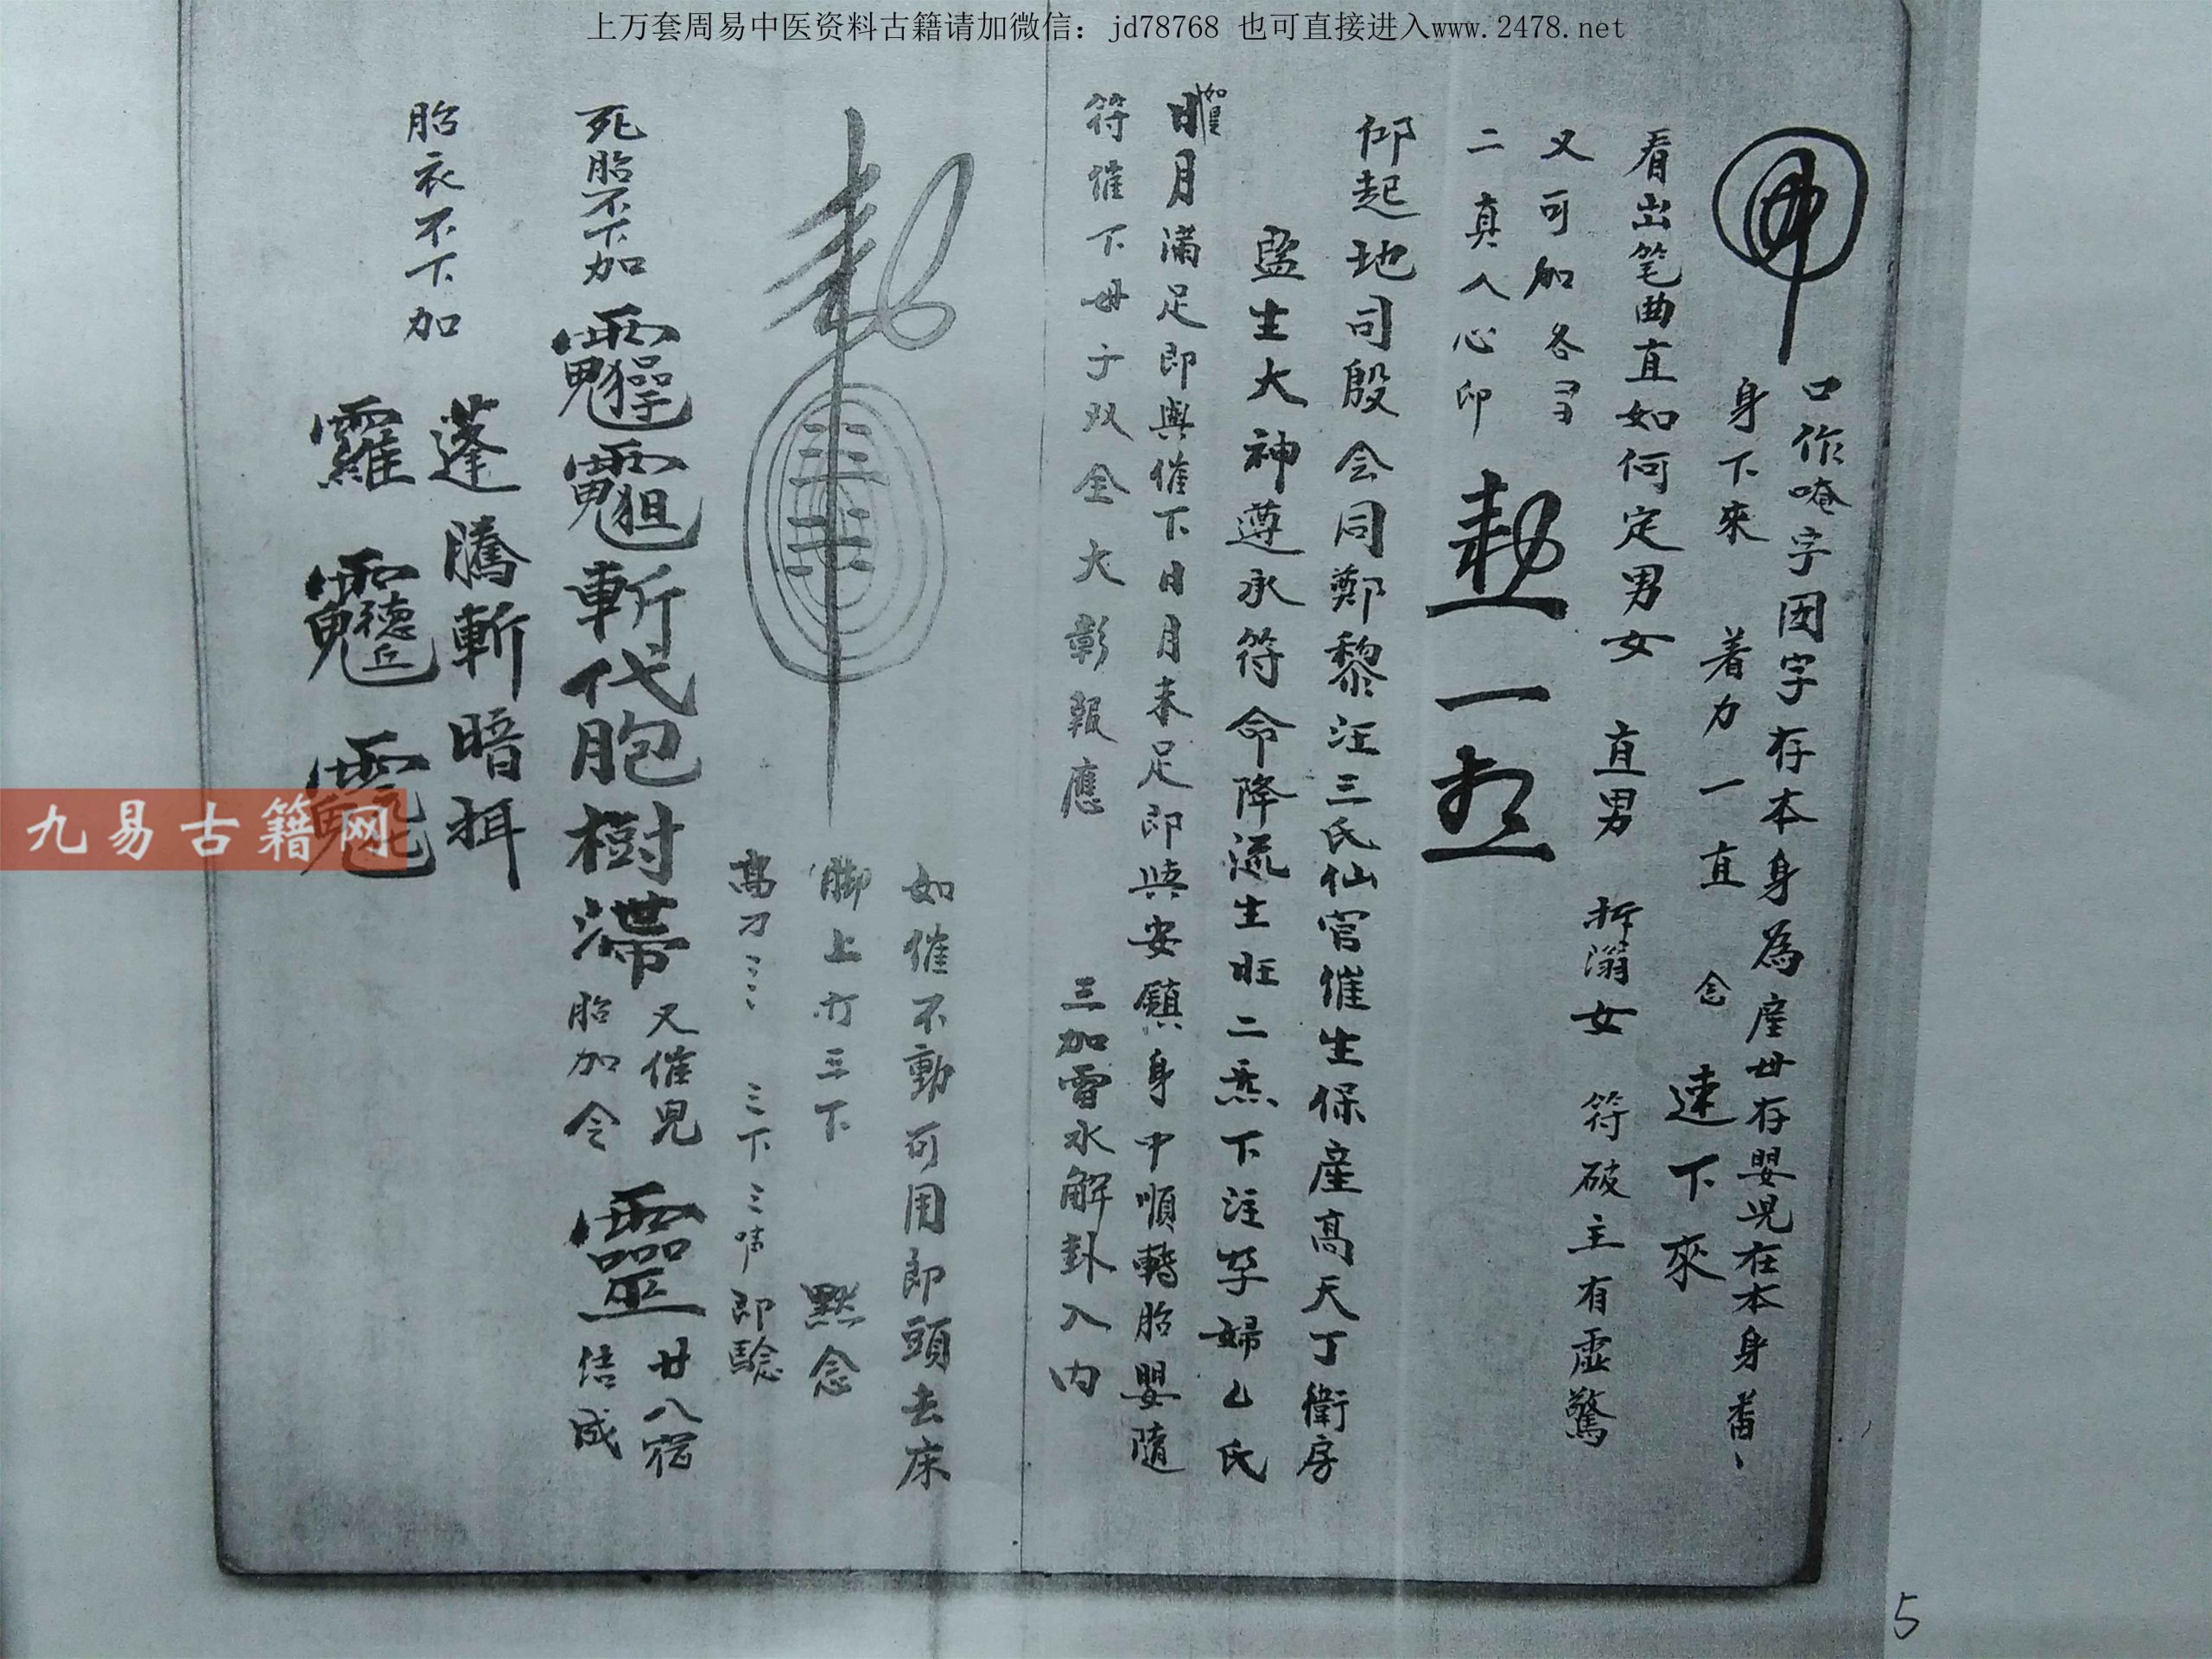 上万套周易中医资料古籍请加微信：jd78768 也可直接进入www.2478.net
口作唵字团字存本身為産母存嬰児在本身番
身下來 着力一直 念 速下來
看出笔曲直如何定男女 直男 女 符破主有虛驚
又可加各
二真人心印 勅 一
仰起地司殷会同鄭黎汪三氏仙官催生保産高天丁衛房
監生大神遵承符命降流生旺二炁下注孕婦厶氏
日月滿足即與催下日月未足即與安鎮身中順轉胎嬰隨
符催下母子双全大彰報應 三加雷水解卦入内
勅
如催不動可用即頭去床
脚上打三下 默念
三下三 即驗
死胎不下加 斬代胞樹滞 又催児胎加令 靈 廿八宿结成
胎衣不下加 蓬騰斬暗
九易古籍网
5